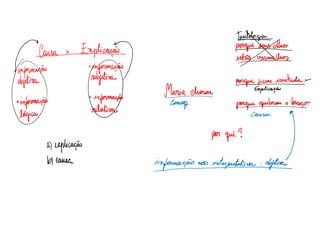 Causa x Explicação
• informação
objetiva
• informação
lógica
• informação
subjetiva
• informação
relativa
a) explicação
b) causa
Maria chorou
porque
olhos
vermelhos
porque ficou
Explicação
porque quebrou o braço
causa
por quê?
informação não interpretativa - objetiva